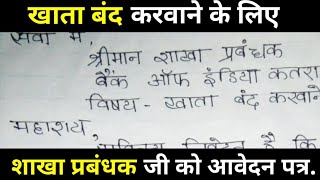 खाता बंद करवाने के लिए
सेवा में,
श्रीमान शाखा प्रबंधक
बैंक ऑफ इंडिया कतरा
विषय - खाता बंद करवाने
महाशय,
निवेदन है कि
शाखा प्रबंधक जी को आवेदन पत्र.